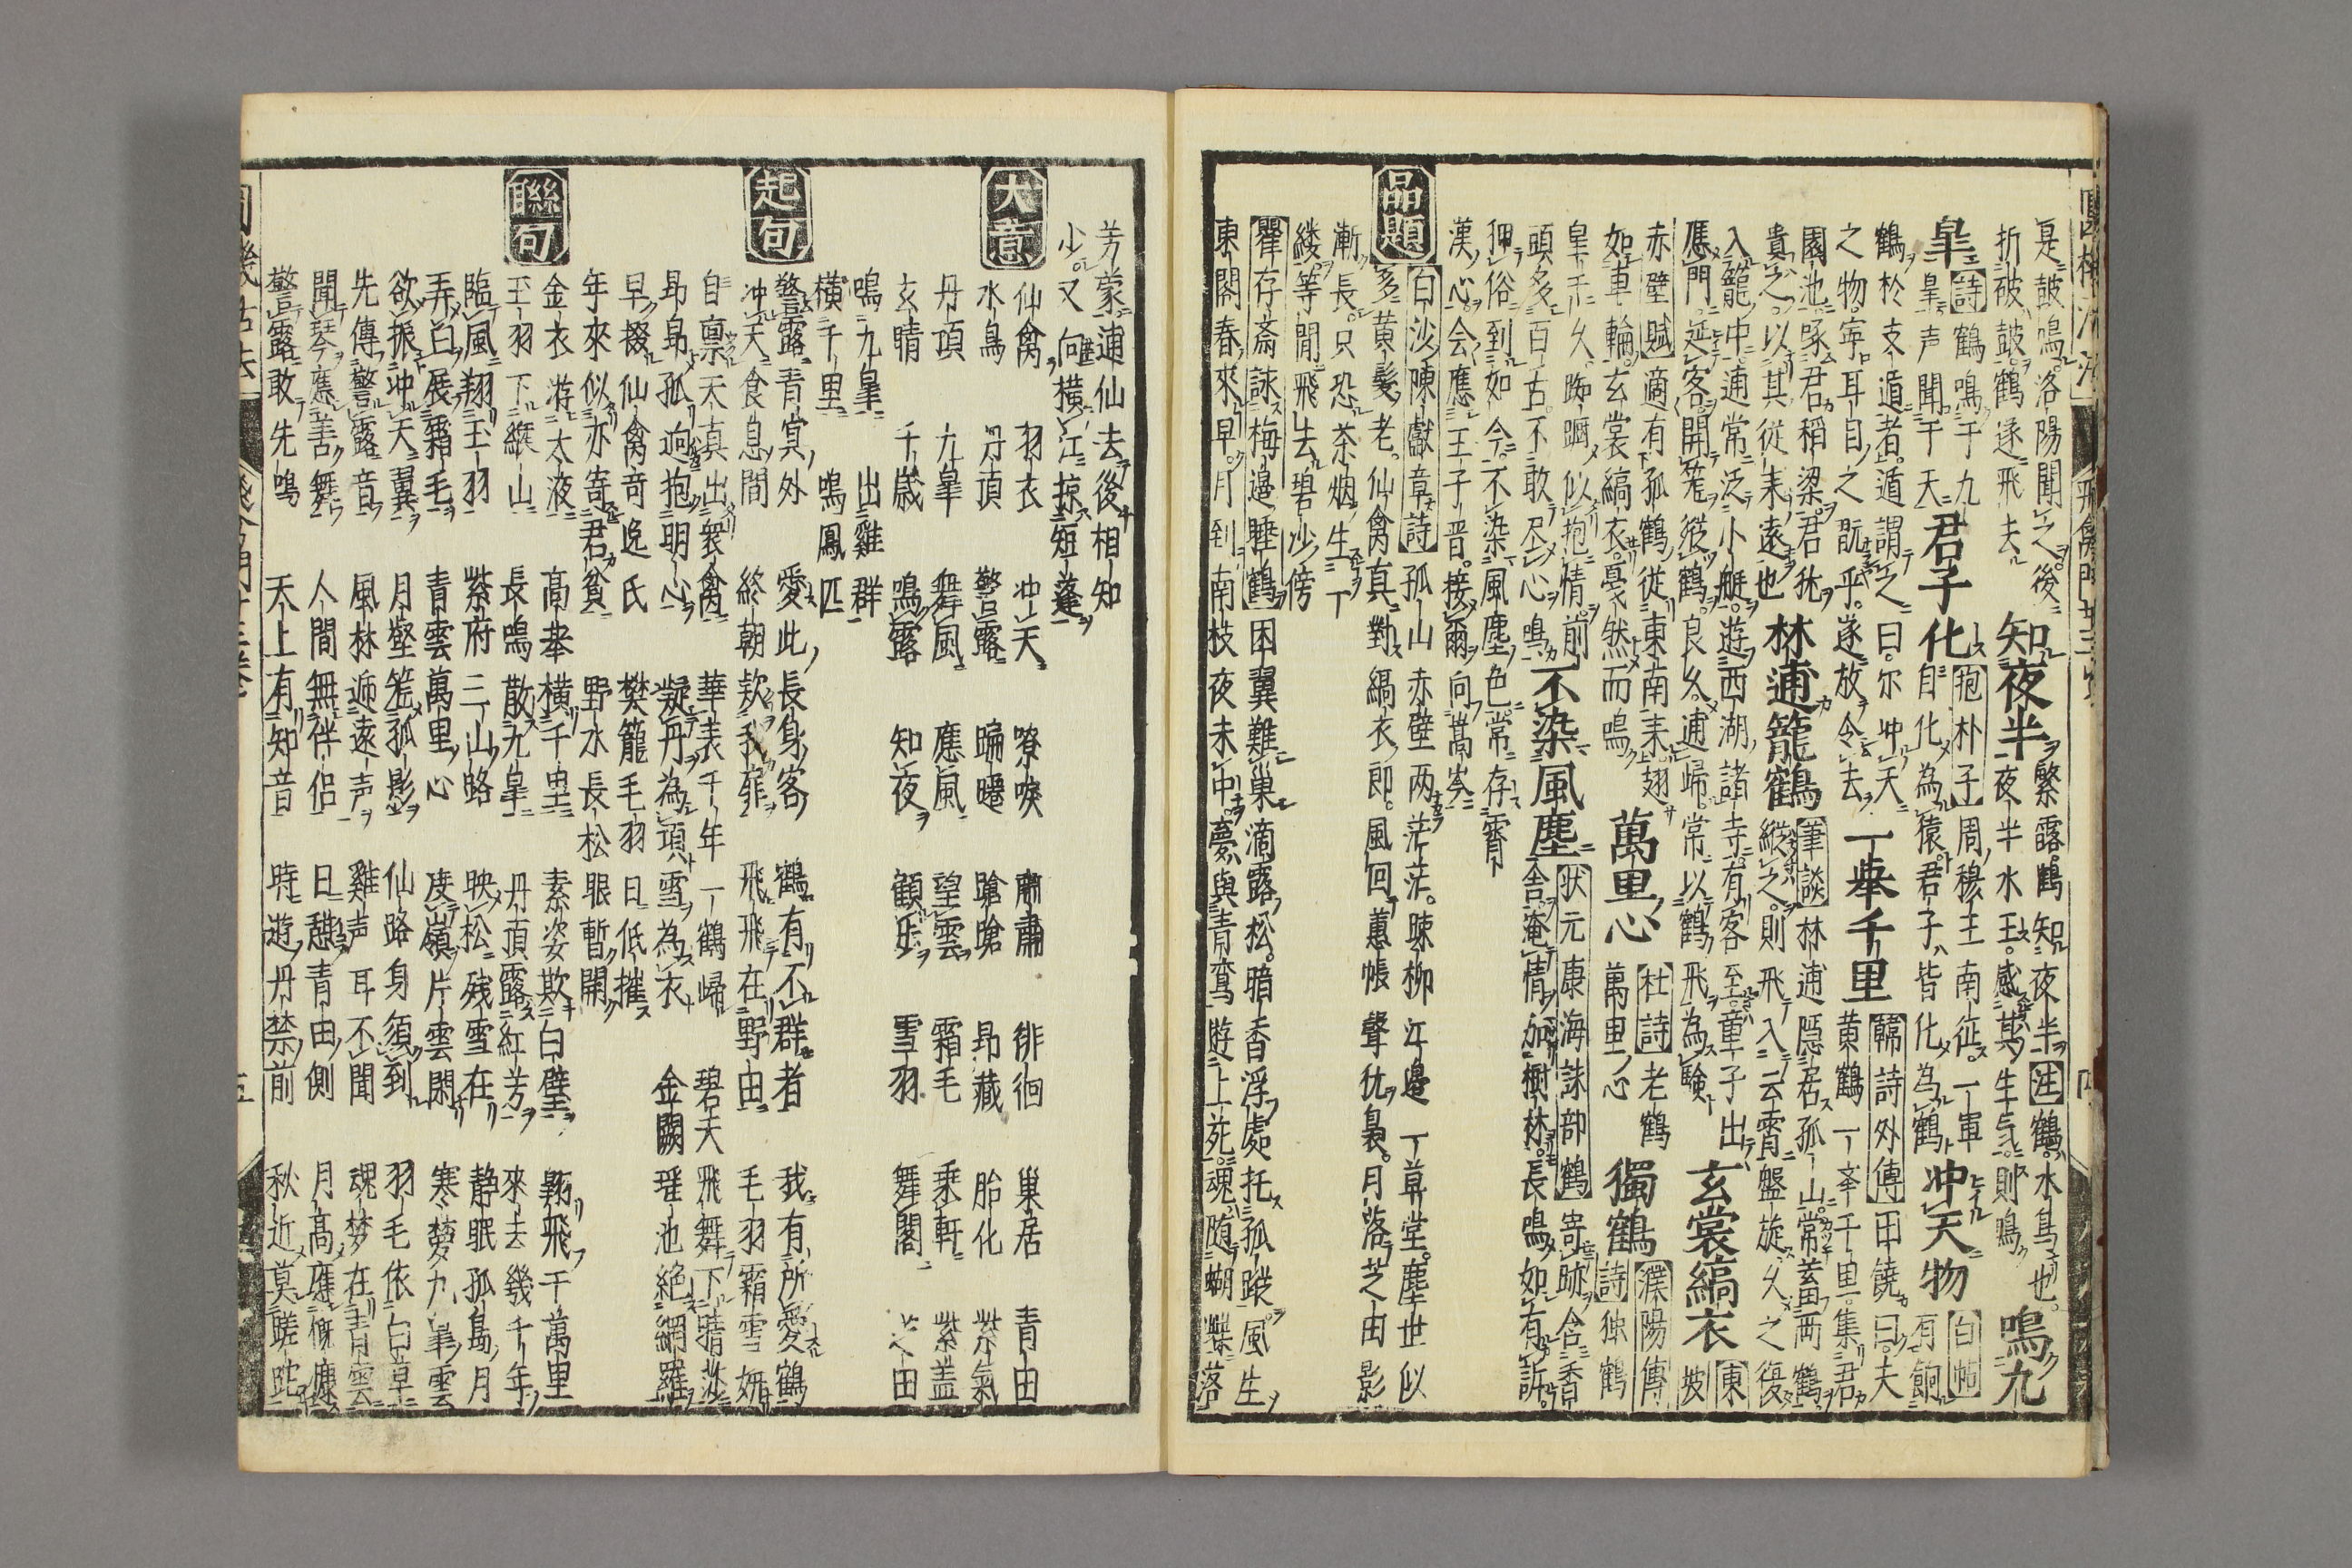 是皷鳴洛陽聞之後
折被皷鶴遂飛去
知夜半
繁露鶴知夜半注鶴水鳥也
夜半水王感其生気則鳴
鳴九
皐
詩鶴鳴于九
皐声聞于天
君子化
抱朴子周穆王南征一軍
自化為猿君子皆化為鶴
冲天物
有餉
鶴於支遁者遁謂之曰尓冲天
之物寧耳目之翫乎遂放令去
一挙千里
韓詩外傳田饒曰夫
黄鶴一挙千里集君
園池啄君稲梁君犹
貴之以其従来遠也
林逋籠鶴
筆談林逋隠居孤山常蓄両鶴
縦之則飛入云霄盤旋久之復
入籠中逋常泛小艇遊西湖諸寺有客至童子出
應門延客開篭縦鶴良久逋帰常以鶴飛為験
玄裳縞衣
東
坡
赤壁賦適有孤鶴従東南来翅
如車輪玄裳縞衣戛然而鳴
萬里心
杜詩老鶴
萬里心
獨鶴
濮陽傳
詩独鶴
頭多百古不敢尽心鳴
不染風塵
状元康海誅部鶴寄跡含香
舎淹情加樹林長鳴如有訴
狎俗到如今不染風塵色常存霄
漢心会應王子晋接爾向嵩岑
品題
白沙陳獻章詩孤山赤壁两茫茫踈柳江邊一草堂塵世似
多黄髪老仙禽真對縞衣郎風回蕙帳聲犹裊月落芝田影
漸長只恐茶烟生一
縷等閒飛去碧沙傍
瞿存斎詠梅邉睡鶴困翼難巣滴露松暗香浮處托孤蹤風生
東閣春來早月到南枝夜未中夢與青鸞遊上苑魂随蝴蝶落
芳蒙逋仙去後相知
少又向横江掠短蓬
大意
仙禽 羽衣 冲天 嘹唳 肅肅 徘徊 巣居 青田
水鳥 丹頂 警露 蹁躚 蹌蹌 昂藏 胎化 紫氣
丹頂 九皐 舞風 應風 望雲 霜毛 乗軒 紫蓋
玄睛 千歳 鳴露 知夜 顧步 雪羽 舞閣 芝田
鳴九皐 出雞群
横千里 鳴鳳匹
起句
警露青冥外 愛此長身客 鶴有不群者 我有所愛鶴
冲天食息間 終朝款我扉 飛飛在野田 毛羽霜雪妍
自禀天真出衆禽 華表千年一鶴帰 碧天飛舞下晴莎
昂昂孤迥抱明心 凝丹為頂雪為衣 金闕瑶池絶網羅
早掇仙禽竒逸氏 樊籠毛羽日低摧
年來似亦寄君貧 野水長松眼暫開
聯句
金衣游太液 高挙横千里 素姿欺白璧 翱飛千萬里
玉羽下緱山 長鳴散九皐 丹頂露紅芳 來去幾千年
臨風翔玉羽 紫府三山路 映松残雪在 静眠孤島月
弄白展霜毛 青雲萬里心 度嶺片雲閑 寒夢九皐雲
欲振冲天翼 月壑篭孤影 仙路身須到 羽毛依白草
先傳警露音 風林逓遠声 雞声耳不聞 魂梦在青雲
聞琴應善舞 人間無伴侶 日憩青田側 月高應慨慷
警露敢先鳴 天上有知音 時遊丹禁前 秋近莫蹉跎